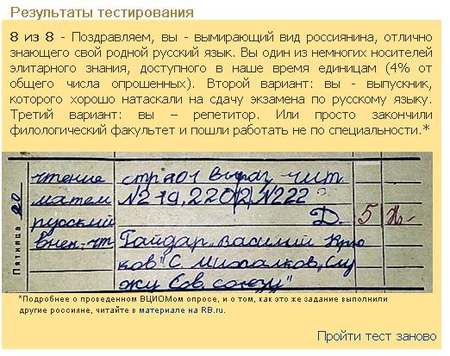 Результаты тестирования
8 из 8 - Поздравляем, вы - вымирающий вид россиянина, отлично
знающего свой родной русский язык. Вы один из немногих носителей
элитарного знания, доступного в наше время единицам (4% от
общего числа опрошенных). Второй вариант: вы - выпускник,
которого хорошо натаскали на сдачу экзамена по русскому языку.
Третий вариант: вы – репетитор. Или просто закончили
филологический факультет и пошли работать не по специальности.*
Пятница 20
чтение стр 201 выраз. чит.
матем №219, 220, №222
русский 5
внек. чт Гайдар, Василий
"С. Михалков,
Сов. союзу"
*Подробнее о проведенном ВЦИОМом опросе, и о том, как это же задание выполнили
другие россияне, читайте в материале на RB.ru.
Пройти тест заново